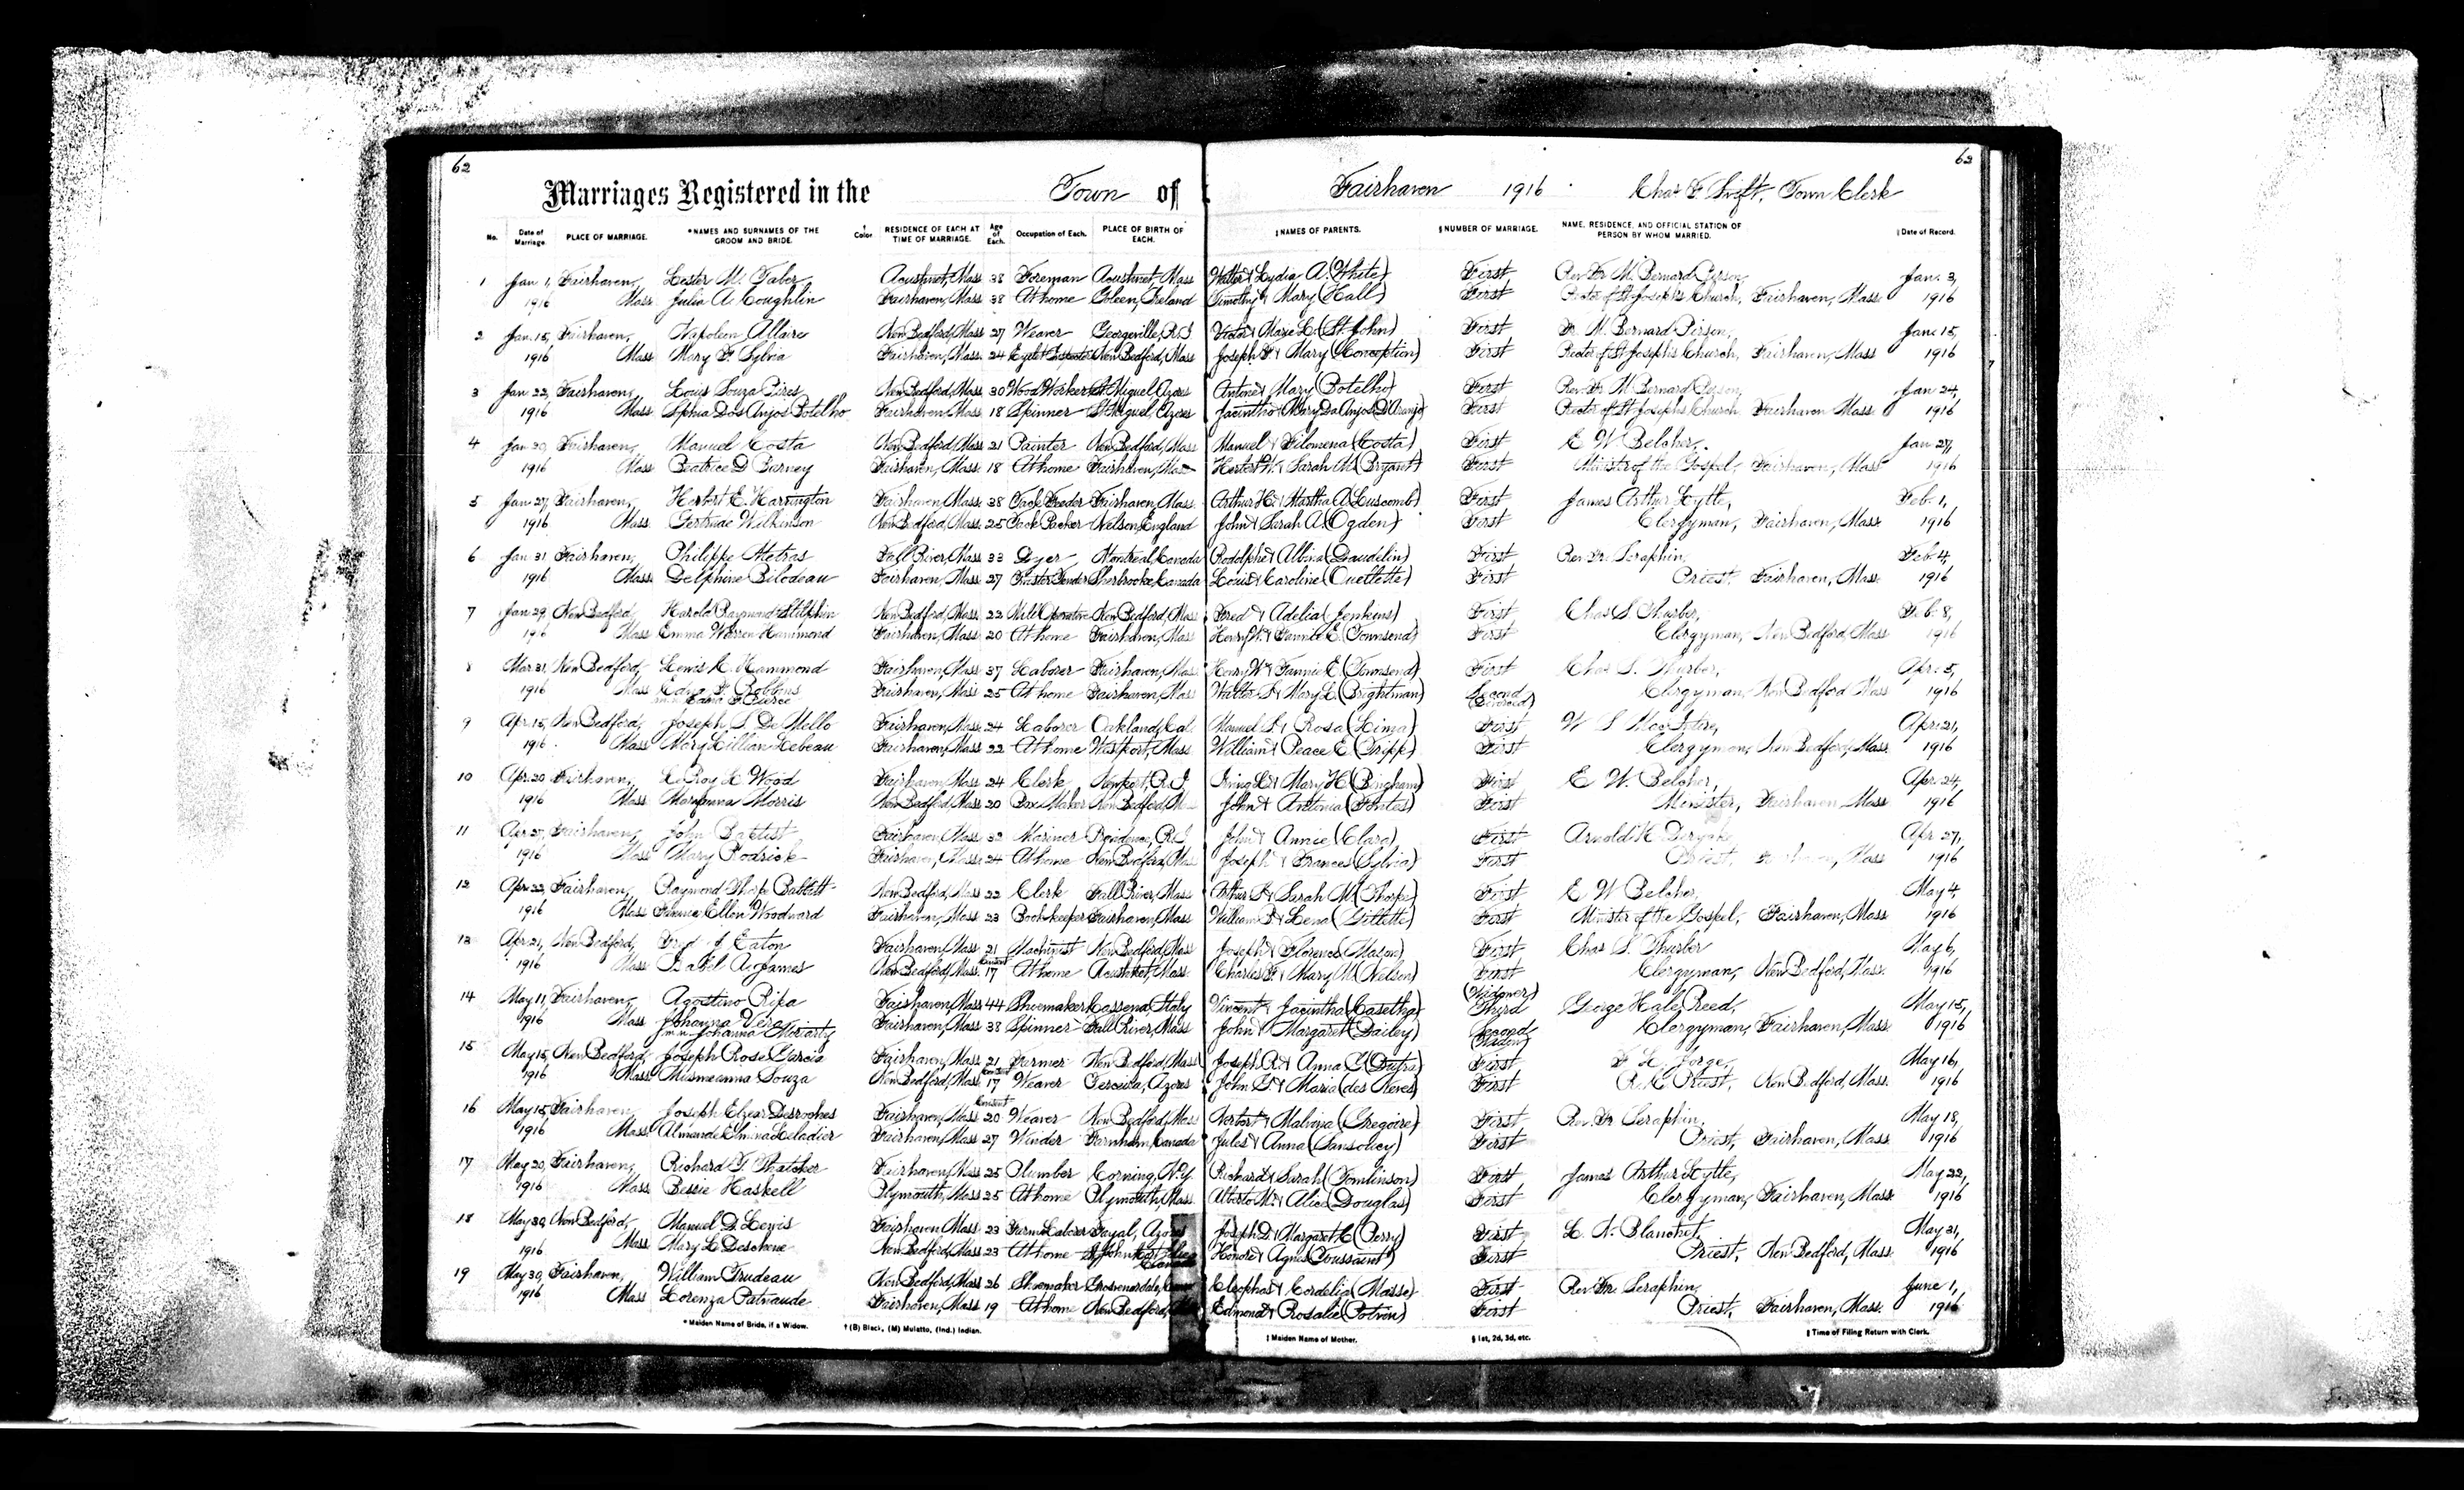 62 62
Marriages Registered in the Town of Fairhaven 1916 Chas F. Swift, Town Clerk
No. Date of Marriage. PLACE OF MARRIAGE. *NAMES AND SURNAMES OF THE GROOM AND BRIDE. † Color RESIDENCE OF EACH AT TIME OF MARRIAGE. Age of Each. Occupation of Each. PLACE OF BIRTH OF EACH. ‡NAMES OF PARENTS. §NUMBER OF MARRIAGE. NAME, RESIDENCE, AND OFFICIAL STATION OF PERSON BY WHOM MARRIED. ‖Date of Record.
1 Jan 1, Fairhaven, Lester M. Taber Acushnet, Mass 38 Foreman Acushnet, Mass Walter & Lydia A. (White) First Rev. Fr. M. Bernard Jan. 3,
1916 Mass. Julia A. Coughlin Fairhaven, Mass 38 At home Ireland Timothy & Mary (Hall) First Rector of St Joseph's Church, Fairhaven, Mass 1916
2 Jan. 15, Fairhaven, Napoleon Allaire New Bedford, Mass 27 Weaver Georgeville, R.I. Victor & Marie L. (St. John) First Fr. M. Bernard Jan. 15,
1916 Mass Mary F. Sylvia Fairhaven, Mass. 24 Eyelet New Bedford, Mass Joseph F. & Mary (Conception) First Rector of St Joseph's Church, Fairhaven, Mass 1916
3 Jan 22, Fairhaven, Louis Souza Pires New Bedford, Mass 30 Wood Worker St. Miguel Azores Antone & Mary (Botelho) First Rev. Fr. M. Bernard Jan 24,
1916 Mass Sophia Dos Anjos Botelho Fairhaven, Mass 18 Spinner St. Miguel, Azores Jacintho & Mary Da Anjos First Rector of St Josephs Church, Fairhaven Mass 1916
4 Jan 20, Fairhaven, Manuel Costa New Bedford, Mass 21 Painter New Bedford, Mass Manuel & Filomena (Costa) First E W Belcher, Jan 27,
1916 Mass Beatrice D Burney Fairhaven, Mass. 18 At home Fairhaven, Mass Herbert W. & Sarah M. (Bryant) First Minister of the Gospel, Fairhaven, Mass 1916
5 Jan 27, Fairhaven, Herbert E. Harrington Fairhaven, Mass. 38 Tack Feeder Fairhaven, Mass. Arthur H. & Martha A (Luscomb) First James Arthur Lytle, Feb 1,
1916 Mass. Gertrude Wilkinson New Bedford, Mass. 25 Tack Packer Nelson, England John & Sarah A. (Ogden) First Clergyman, Fairhaven, Mass. 1916
6 Jan 31 Fairhaven, Philippe Metras Fall River, Mass 33 Dyer Montreal, Canada Rodolphe & Albina (Daudelin) First Rev. Fr. Seraphin, Feb 4,
1916 Mass. Delphine Bilodeau Fairhaven, Mass. 27 Sherbrooke, Canada Louis & Caroline (Ouellette) First Priest, Fairhaven, Mass. 1916
7 Jan 29, New Bedford, Harold Raymond Stilphin New Bedford, Mass. 22 Mill Operative New Bedford, Mass Fred & Adelia (Jenkins) First Chas S. Thurber, Feb. 8,
1916 Mass Emma Warren Hammond Fairhaven, Mass 20 At home Fairhaven, Mass Henry W. & Fannie E. (Townsend) First Clergyman, New Bedford, Mass 1916
8 Mar 31, New Bedford, Lewis K. Hammond Fairhaven, Mass. 37 Laborer Fairhaven, Mass Henry W & Fannie E. (Townsend) First Chas S. Thurber, Apr. 5,
1916 Mass F. Robbins Fairhaven, Mass 25 At home Fairhaven, Mass Walter & Mary E. (Brightman) Second Clergyman, New Bedford Mass 1916
F. Pierce (Divorced)
9 Apr. 15, New Bedford, Joseph S. De Mello Fairhaven, Mass. 24 Laborer Oakland, Cal. Manuel S. & Rosa (Lima) First W S Apr. 21,
1916 Mass Mary Lillian Lebeau Fairhaven, Mass 22 At home Westport, Mass William & Peace E. (Tripp) First Clergyman, New Bedford, Mass. 1916
10 Apr. 20 Fairhaven, LeRoy L. Wood Fairhaven, Mass 24 Clerk Newport, R.I. Irving L. & Mary H. (Bingham) First E. W. Belcher, Apr. 24,
1916 Mass Morris New Bedford, Mass 20 Box Maker New Bedford, John & Antonia (Fontes) First Minister, Fairhaven, Mass 1916
11 Apr. 27, Fairhaven, John Baptist Fairhaven, Mass. 32 Mariner Providence, R.I. John & Annie (Clara) First Arnold Apr. 27,
1916 Mass Mary Rodrick Fairhaven, Mass. 24 At home New Bedford, Mass Joseph & Frances (Sylvia) First Priest, Fairhaven, Mass 1916
12 Apr. 22, Fairhaven, Raymond Thorpe Babbitt New Bedford, Mass 22 Clerk Fall River, Mass Arthur & Sarah M. (Thorpe) First E. W Belcher, May 4,
1916 Mass Ellen Woodward Fairhaven, Mass 23 Bookkeeper Fairhaven, Mass William & Lena (Gillette) First Minister of the Gospel, Fairhaven, Mass 1916
13 Apr. 21, New Bedford, Eaton Fairhaven, Mass 21 Machinist New Bedford, Mass Joseph & Florence (Mason) First Chas S. Thurber May 6,
1916 Mass Isabel A. James New Bedford, Mass. Consent 17 At home Acushnet, Mass. Charles F. & Mary M. (Nelson) First Clergyman, New Bedford, Mass. 1916
14 May 11, Fairhaven, Agostino Ripa Fairhaven, Mass 44 Shoemaker Italy Vincent & Jacintha (Widower) Third George Hale Reed, May 15,
1916 Mass Johanna Vera Fairhaven, Mass 38 Spinner Fall River, Mass John & Margaret (Dailey) Second Clergyman, Fairhaven, Mass. 1916
m.n. Johanna Moriarty (Widow)
15 May 15, New Bedford, Joseph Rose Garcia Fairhaven, Mass 21 Farmer New Bedford, Mass Joseph R. & Anna First Jorge, May 16,
1916 Mass. Souza New Bedford, Mass Consent 17 Weaver Terceira, Azores John & Maria (des Neves) First R. C. Priest, New Bedford, Mass. 1916
16 May 15, Fairhaven, Joseph Elzear Desroches Fairhaven, Mass Consent 20 Weaver New Bedford, Mass & Malvina (Gregoire) First Rev. Fr. Seraphin, May 18,
1916 Mass. Fairhaven, Mass 27 Winder Farnham, Canada Jules & Anna (Sansoucy) First Priest, Fairhaven, Mass. 1916
17 May 20, Fairhaven, Richard T. Thatcher Fairhaven, Mass 25 Plumber Corning, N.Y. Richard & Sarah (Tomlinson) First James Arthur Lytle, May 22,
1916 Mass. Bessie Haskell Plymouth, Mass 25 At home Plymouth, Mass. & Alice (Douglas) First Clergyman, Fairhaven, Mass. 1916
18 May 30, New Bedford, Manuel D. Lewis Fairhaven Mass 23 Farm Laborer Fayal, Azores Joseph D. & Margaret C. (Perry) First Blanchet, May 31,
1916 Mass Mary L. Deschene New Bedford, Mass 23 At home Honore & Agnes (Toussaint) First Priest, New Bedford, Mass. 1916
19 May 30, Fairhaven, William Trudeau New Bedford, Mass 26 Shoemaker Cleophas & Cordelia (Masse) First Rev. Fr. Seraphin, June 1,
1916 Mass Lorenza Patnaude Fairhaven, Mass 19 At home New Bedford, Edmond & Rosalie (Potvin) First Priest, Fairhaven, Mass. 1916
*Maiden Name of Bride, if a Widow. †(B) Black, (M) Mulatto, (Ind.) Indian. ‡Maiden Name of Mother. §1st, 2d, 3d, etc. ‖Time of Filing Return with Clerk.